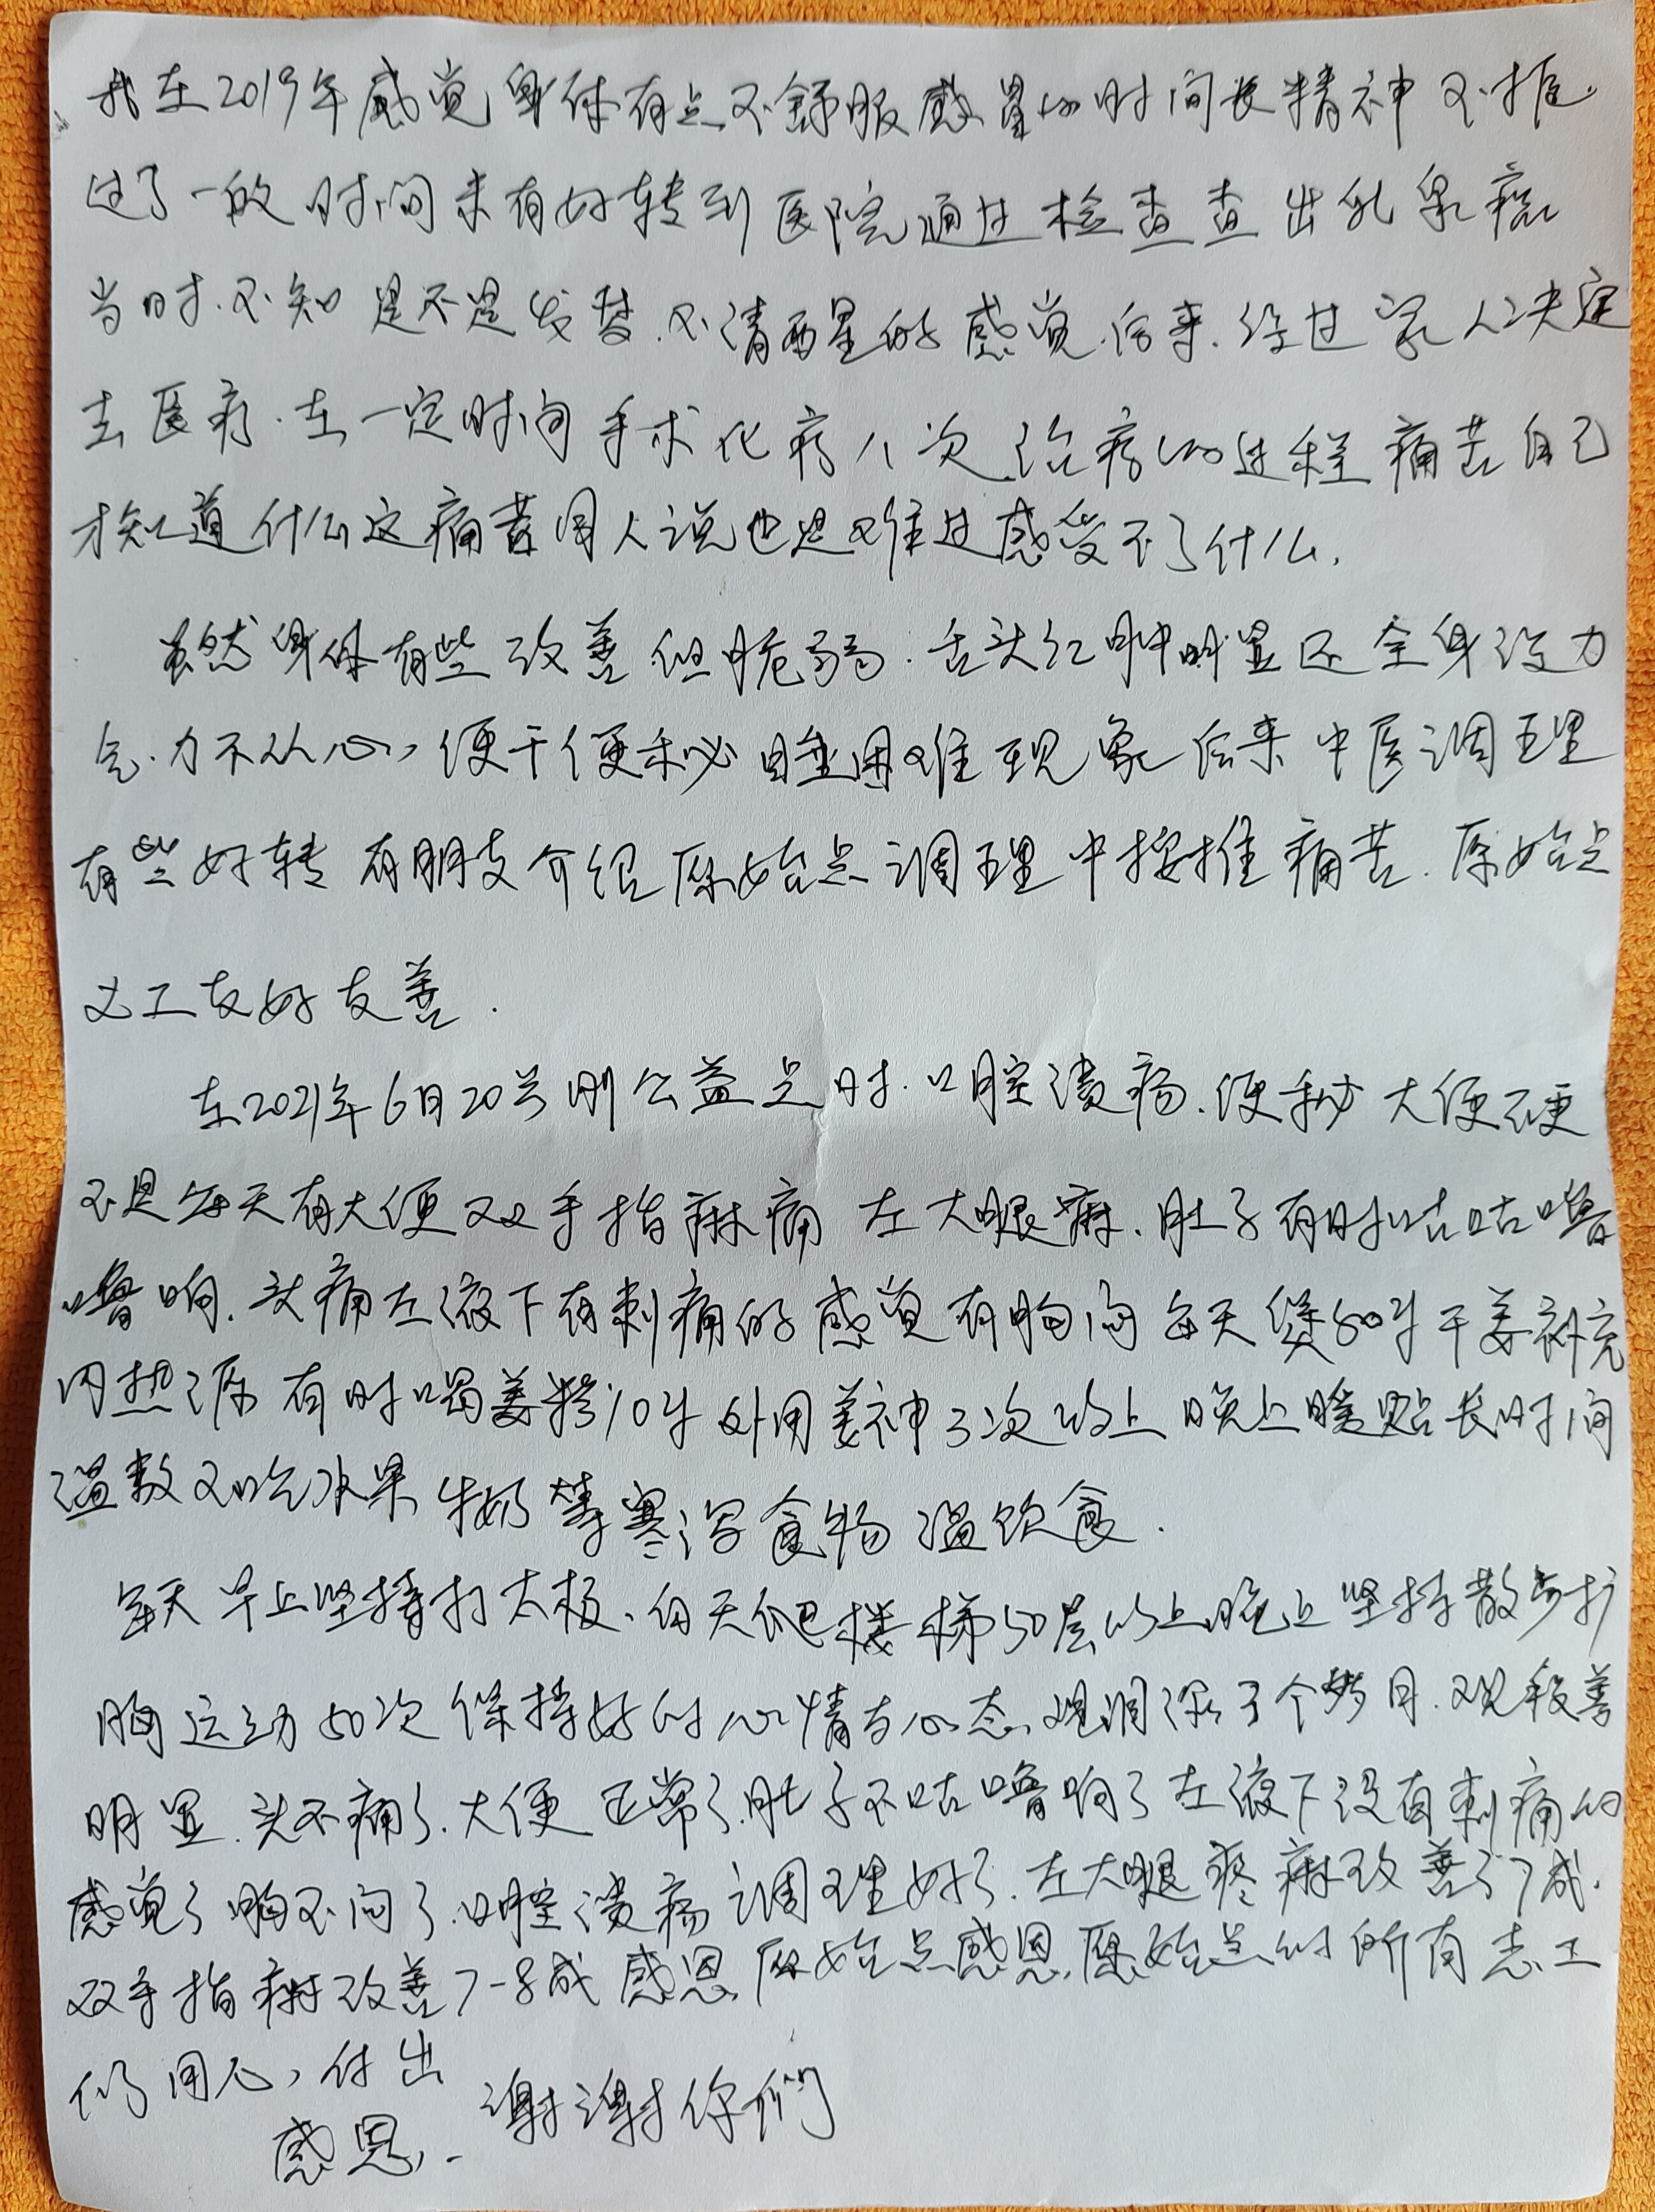 我在2019年感觉身体有点不舒服感冒的时间长精神不振.
过了一段时间未有好转到医院通过检查查出乳泉癌
当时.不知是不是发梦.不清醒的感觉.后来.经过家人决定
去医疗.在一定时间手术化疗八次.治疗的过程痛苦自己
才知道什么这痛苦同人说也是难过感受不了什么.
虽然身体有些改善但脆弱.舌头红肿明显还全身没力
气.力不从心,便干便秘睡困难现象后来中医调理
有些好转有朋友介绍原始点调理中按推痛苦.原始点
义工友好友善.
在2021年6月20号刚公益点时.口腔溃疡.便秘大便硬
不是每天有大便双手指麻痛左大腿麻.肚子有时咕咕噜
噜响.头痛左液下有刺痛的感觉有胸闷每天煲50克干姜补充
内热源有时喝姜粉10克外用姜神3次以上晚上暖贴长时间
温敷不吃水果牛奶等寒泻食物温饮食.
每天早上坚持打太极.白天爬楼梯50层以上晚上坚持散步扩
胸运动50次保持好的心情与心态.调理了个多月.改善
明显.头不痛了.大便正常了.肚子不咕噜响了左液下没有刺痛的
感觉了胸不闷了.口腔溃疡调理好了.左大腿疼麻改善了7成.
双手指麻改善7-8成感恩原始点感恩.原始点的所有志工
们用心,付出
感恩.. 谢谢你们